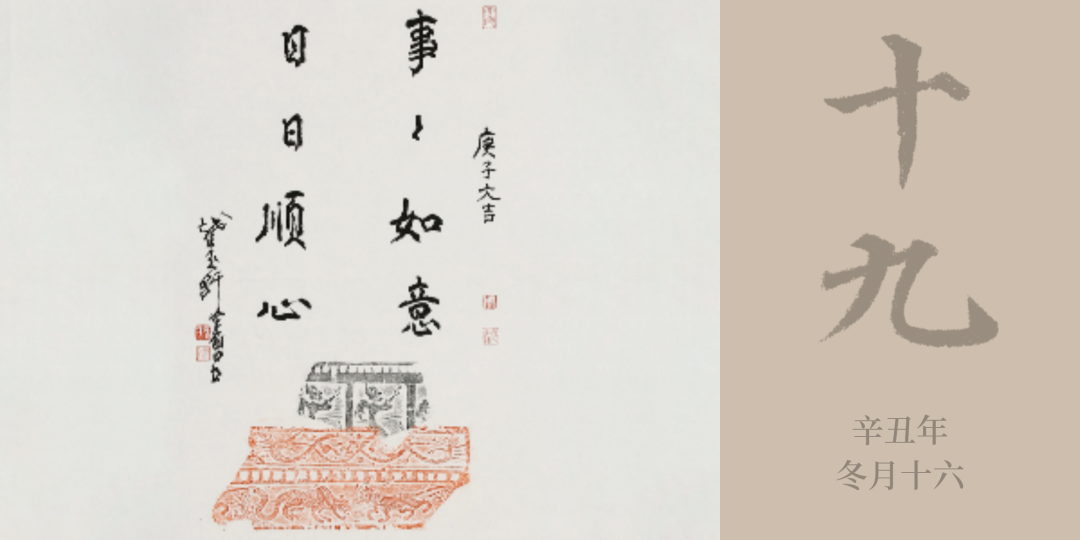 庚子大吉
事〻如意
日日顺心
十九
辛丑年
冬月十六